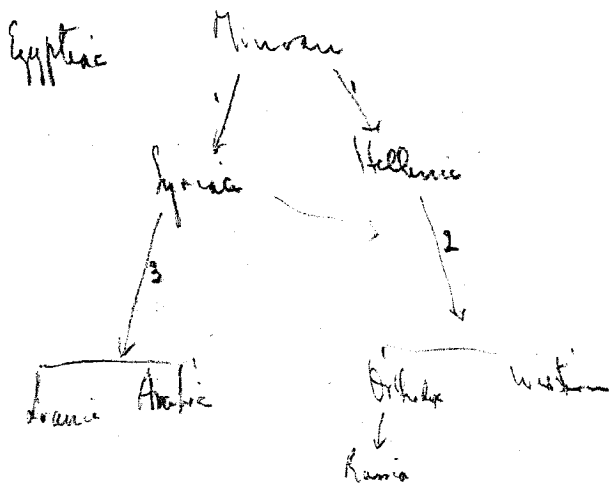 Egyptiac
Minoan
1 1
Syriac
Hellenic
3
2
Iranic Arabic
Orthodox Western
Russia